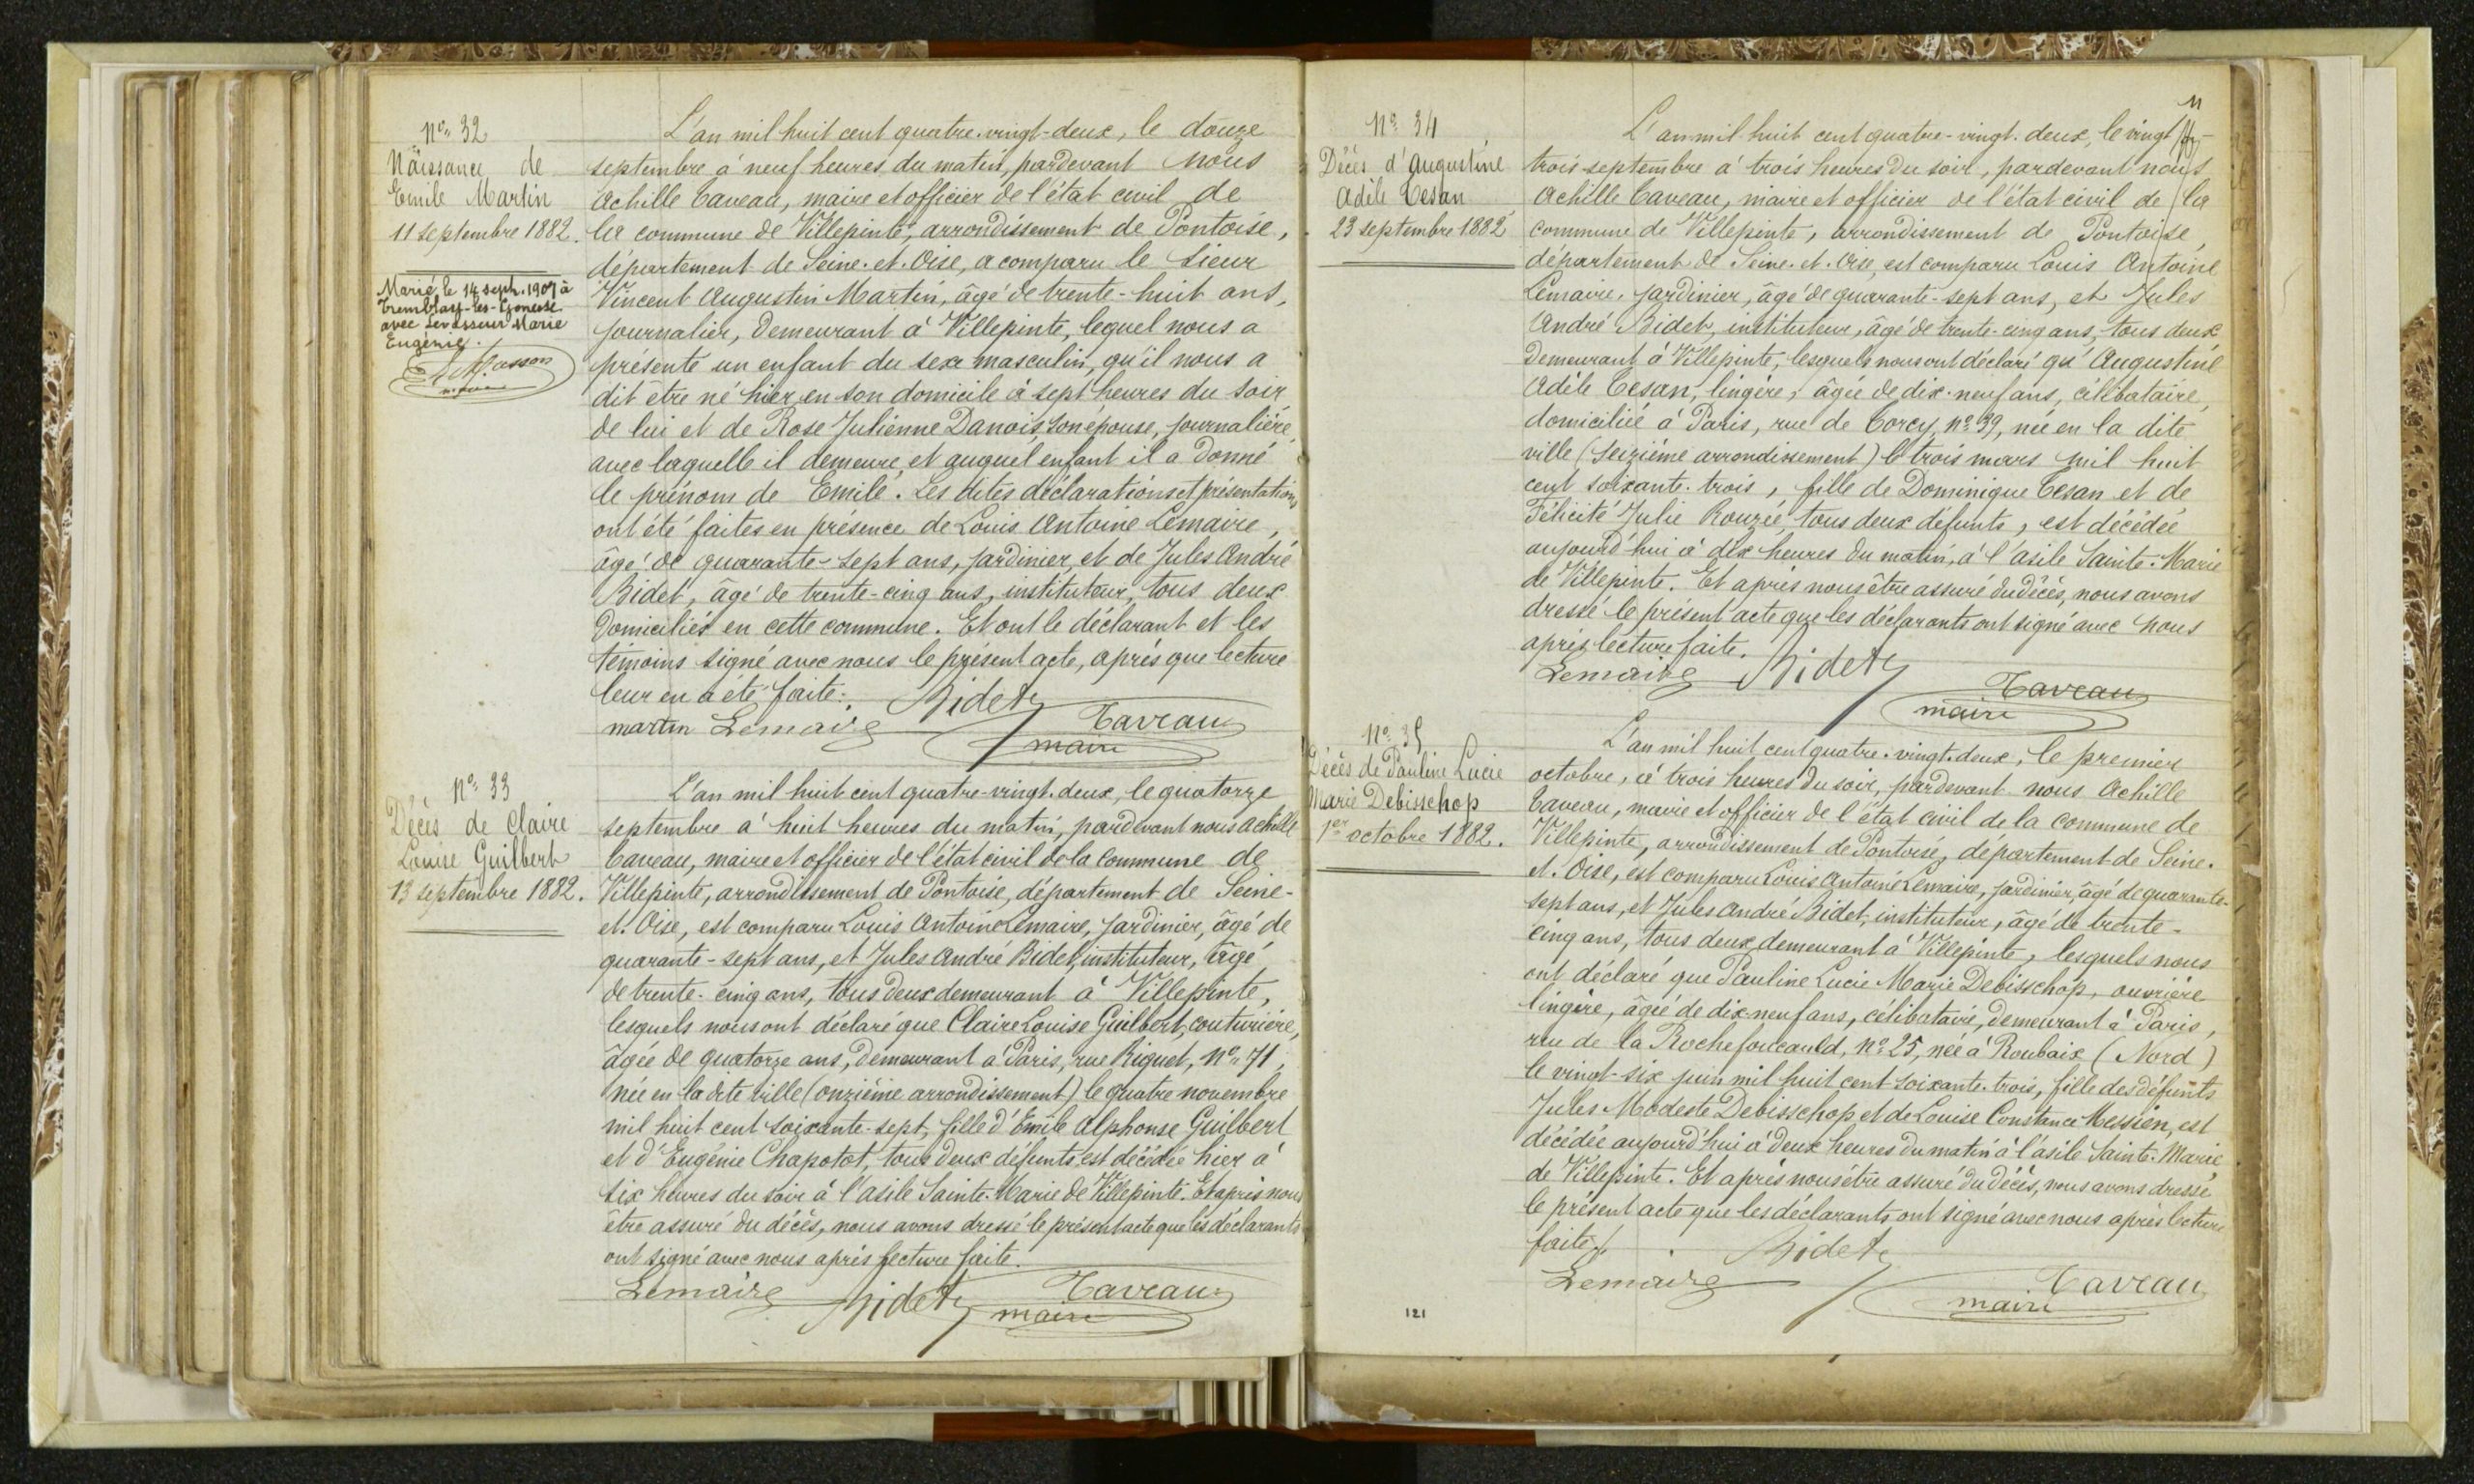 Nº 32
Naissance de
Emile Martin
11 septembre 1882.
Marié le 14 sept. 1907 à
Tremblay-les-Gonesse
avec Levasseur Marie
Eugénie.
L'an mil huit cent quatre-vingt-deux, le douze
septembre à neuf heures du matin, pardevant nous
Achille Taveau, maire et officier de l'état civil de
la commune de Villepinte, arrondissement de Pontoise,
département de Seine-et-Oise, a comparu le sieur
Vincent Augustin Martin, âgé de trente-huit ans,
journalier, demeurant à Villepinte, lequel nous a
présenté un enfant du sexe masculin, qu'il nous a
dit être né hier, en son domicile à sept heures du soir
de lui et de Rose Julienne Danois, son épouse, journalière,
avec laquelle il demeure, et auquel enfant il a donné
le prénom de Emile. Les dites déclarations et présentations
ont été faites en présence de Louis Antoine Lemaire,
âgé de quarante-sept ans, jardinier, et de Jules André
Bidet, âgé de trente-cinq ans, instituteur, tous deux
domiciliés en cette commune. Et ont le déclarant et les
témoins signé avec nous le présent acte, après que lecture
leur en a été faite. Bidet
martin Lemaire Taveau
maire
Nº 33
Décès de Claire
Louise Guilbert
13 septembre 1882.
L'an mil huit cent quatre-vingt-deux, le quatorze
septembre à huit heures du matin, pardevant nous Achille
Taveau, maire et officier de l'état civil de la commune de
Villepinte, arrondissement de Pontoise, département de Seine-
et-Oise, est comparu Louis Antoine Lemaire, jardinier, âgé de
quarante-sept ans, et Jules André Bidet, instituteur, âgé
de trente-cinq ans, tous deux demeurant à Villepinte,
lesquels nous ont déclaré que Claire Louise Guilbert, couturière,
âgée de quatorze ans, demeurant à Paris, rue Riquet, nº 71,
née en la dite ville (onzième arrondissement) le quatre novembre
mil huit cent soixante-sept, fille d'Emile Alphonse Guilbert
et d'Eugénie Chapotot, tous deux défunts, est décédée hier à
six heures du soir à l'asile Sainte-Marie de Villepinte. Et après nous
être assuré du décès, nous avons dressé le présent acte que les déclarants
ont signé avec nous après lecture faite.
Lemaire Bidet Taveau
maire
Nº 34
Décès d'Augustine
Adèle Cesan
23 septembre 1882
11
L'an mil huit cent quatre-vingt-deux, le vingt
trois septembre à trois heures du soir, pardevant nous
Achille Taveau, maire et officier de l'état civil de la
commune de Villepinte, arrondissement de Pontoise,
département de Seine-et-Oise, est comparu Louis Antoine
Lemaire, jardinier, âgé de quarante-sept ans, et Jules
André Bidet, instituteur, âgé de trente-cinq ans, tous deux
demeurant à Villepinte, lesquels nous ont déclaré qu'Augustine
Adèle Cesan, lingère, âgée de dix-neuf ans, célibataire,
domiciliée à Paris, rue de Torcy, nº 39, née en la dite
ville (seizième arrondissement) le trois mars mil huit
cent soixante-trois, fille de Dominique Cesan et de
Félicité Julie Rouzié, tous deux défunts, est décédée
aujourd'hui à dix heures du matin, à l'asile Sainte-Marie
de Villepinte. Et après nous être assuré du décès, nous avons
dressé le présent acte que les déclarants ont signé avec nous
après lecture faite.
Lemaire Bidet
Taveau
maire
Nº 35
Décès de Pauline Lucie
Marie Debisschop
1er octobre 1882.
L'an mil huit cent quatre-vingt-deux, le premier
octobre, à trois heures du soir, pardevant nous Achille
Taveau, maire et officier de l'état civil de la commune de
Villepinte, arrondissement de Pontoise, département de Seine-
et-Oise, est comparu Louis Antoine Lemaire, jardinier, âgé de quarante-
sept ans, et Jules André Bidet, instituteur, âgé de trente-
cinq ans, tous deux demeurant à Villepinte, lesquels nous
ont déclaré que Pauline Lucie Marie Debisschop, ouvrière
lingère, âgée de dix-neuf ans, célibataire, demeurant à Paris,
rue de la Rochefoucauld, nº 25, née à Roubaix (Nord)
le vingt-six juin mil huit cent soixante-trois, fille des défunts
Jules Modeste Debisschop et de Louise Constance Messien, est
décédée aujourd'hui à deux heures du matin à l'asile Sainte-Marie
de Villepinte. Et après nous être assuré du décès, nous avons dressé
le présent acte que les déclarants ont signé avec nous après lecture
faite. Bidet
Lemaire Taveau
maire
121